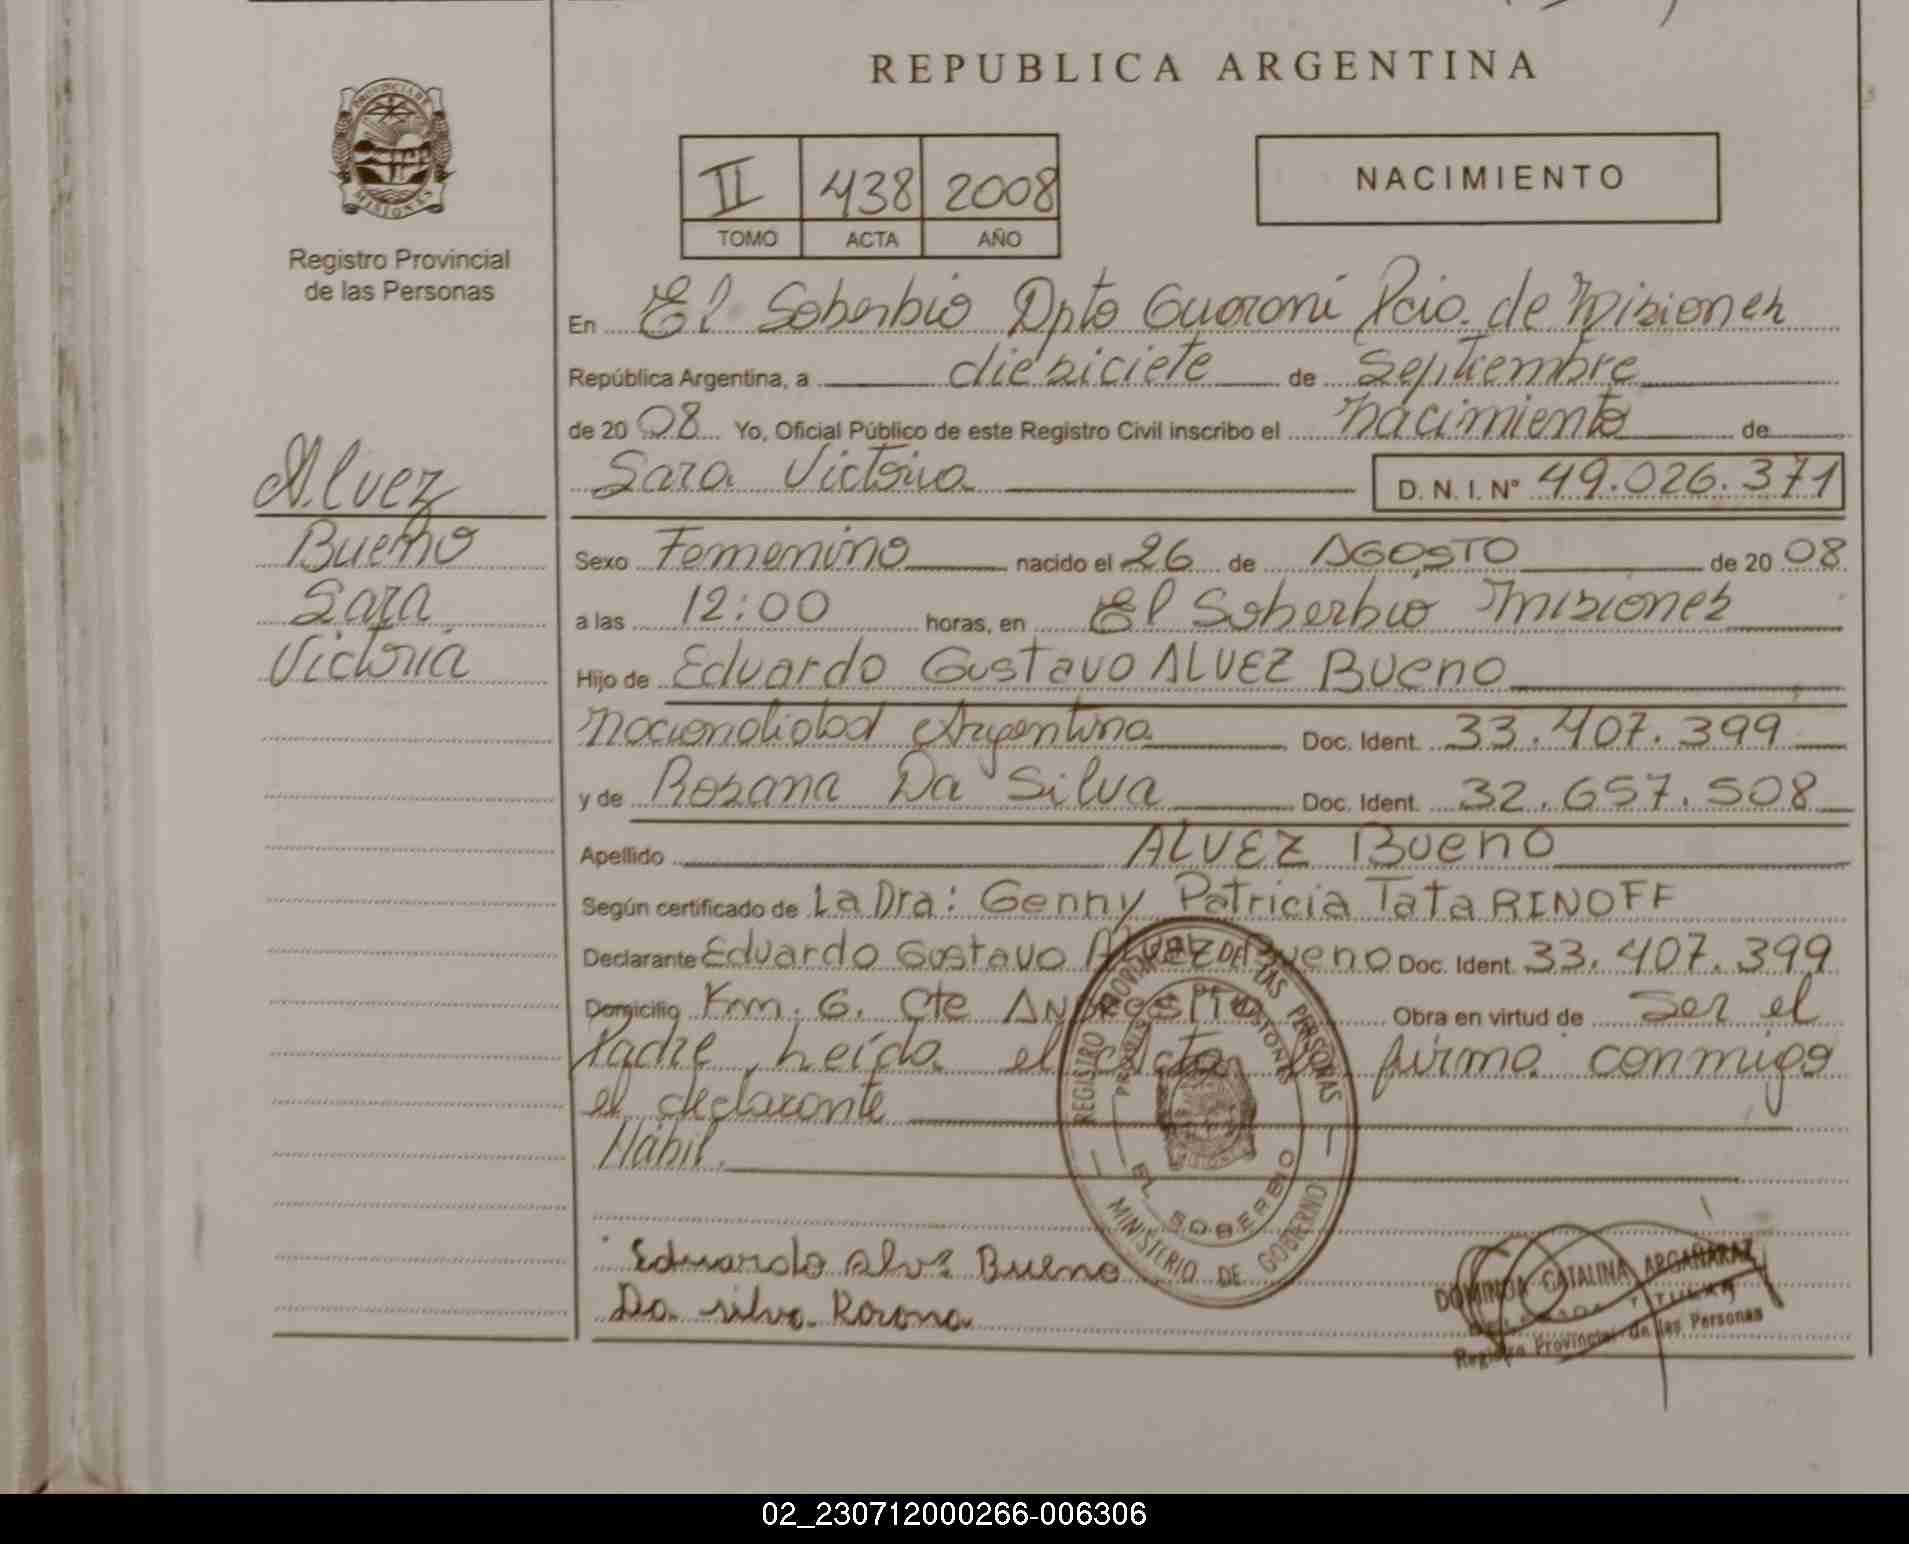 REPUBLICA ARGENTINA
PROVINCIA DE MISIONES
Registro Provincial
de las Personas
II 438 2008
TOMO ACTA AÑO
NACIMIENTO
En El Soberbio Dpto Guaraní Pcia. de Misiones
República Argentina, a diesiciete de Septiembre
de 2008 Yo, Oficial Público de este Registro Civil inscribo el nacimiento de
Sara Victoria D. N. I. Nº 49.026.371
Alvez
Bueno
Sara
Victoria
Sexo Femenino nacido el 26 de AGOSTO de 2008
a las 12:00 horas, en El Soberbio Misiones
Hijo de Eduardo Gustavo ALVEZ Bueno
Nacionalidad Argentina Doc. Ident. 33.407.399
y de Rosana Da Silva Doc. Ident. 32.657.508
Apellido ALVEZ Bueno
Según certificado de La Dra: Genny Patricia TataRINOFF
Declarante Eduardo Gustavo Alvez Bueno Doc. Ident. 33.407.399
Domicilio Km. 6. Cte ANDRESITO Obra en virtud de Ser el
Padre, heída el acta firma conmigo
el declarante
Hábil.
REGISTRO PROVINCIAL DE LAS PERSONAS
PROVINCIA DE MISIONES
EL SOBERBIO
MINISTERIO DE GOBIERNO
Eduardo Alvez Bueno
Da silva Rosana
DOMINGA CATALINA ARGAÑARAZ
TITULAR
Registro Provincial de las Personas
02_230712000266-006306